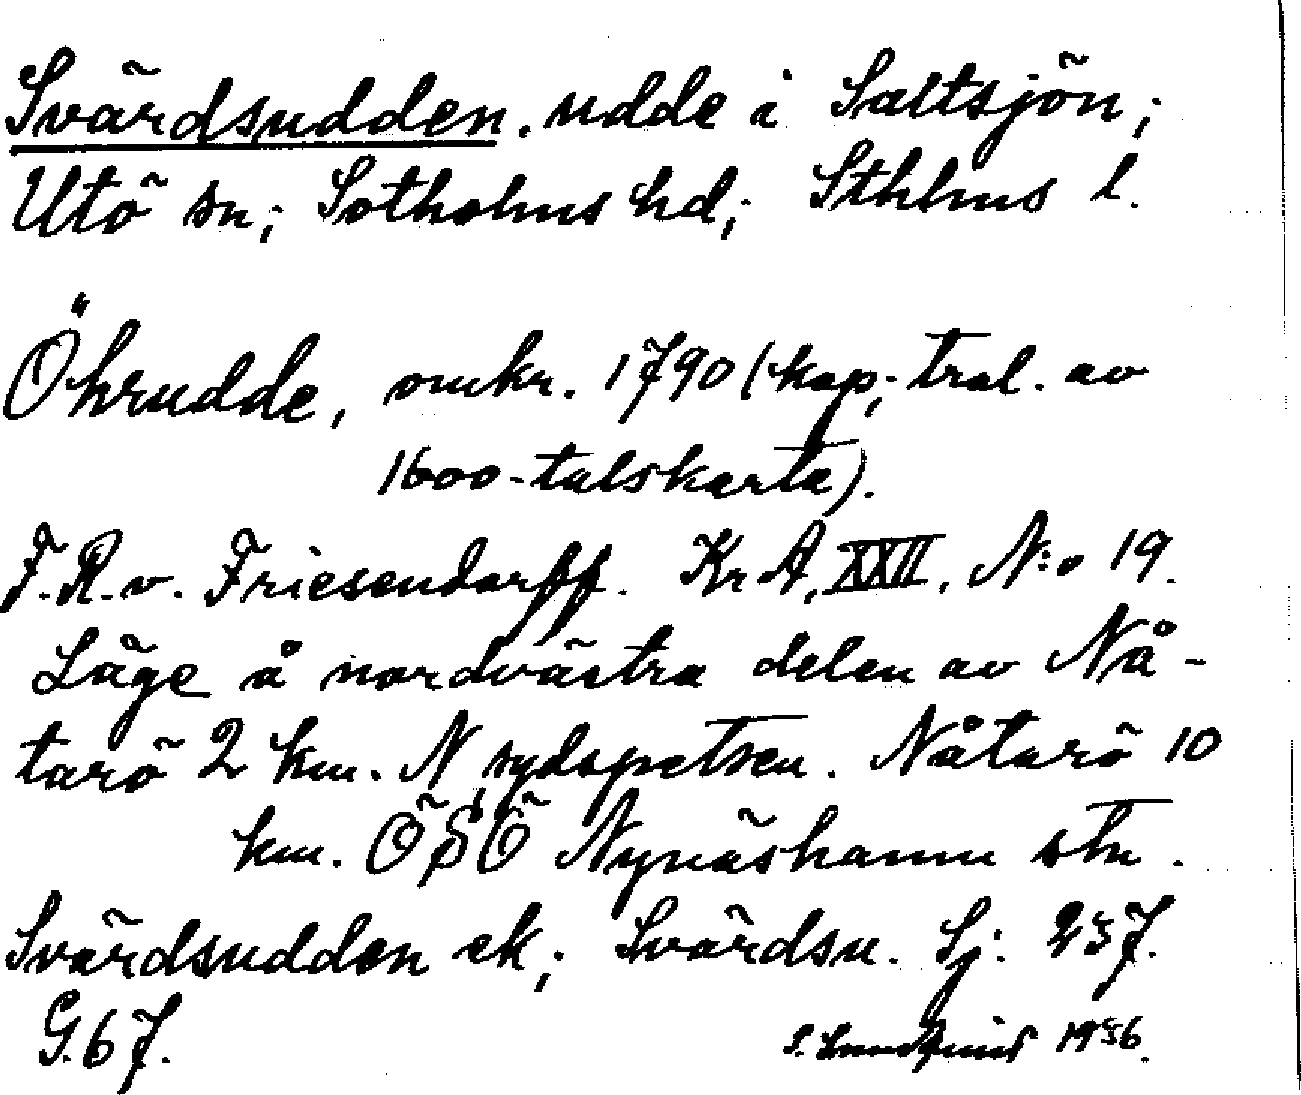 Svärdsudden. udde i Saltsjön;
Utö sn; Sotholms hd; Sthlms l.
Öhrudde, omkr. 1790 (kop; trol. av
1600-talskarta).
F.R.v. Friesendorff. Kr A, XXII, N:o 19.
Läge å nordvästra delen av Nå-
tarö 2 km. N sydspetsen. Nåtarö 10
km. ÖSÖ Nynäshamn stn.
Svärdsudden ek; Svärdsu. Sj: 257.
G. 67.
S. Lundquist 1936.